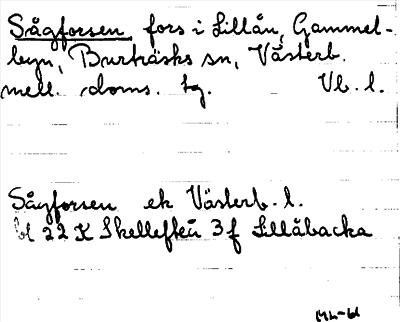 Sågforsen fors i Lillån, Gammel-
byn, Burträsks sn, Västerb.
mell. doms. tg. Vb. l.
Sågforsen ek Västerb. l.
bl 22 K Skellefteå 3 f Lillåbacka